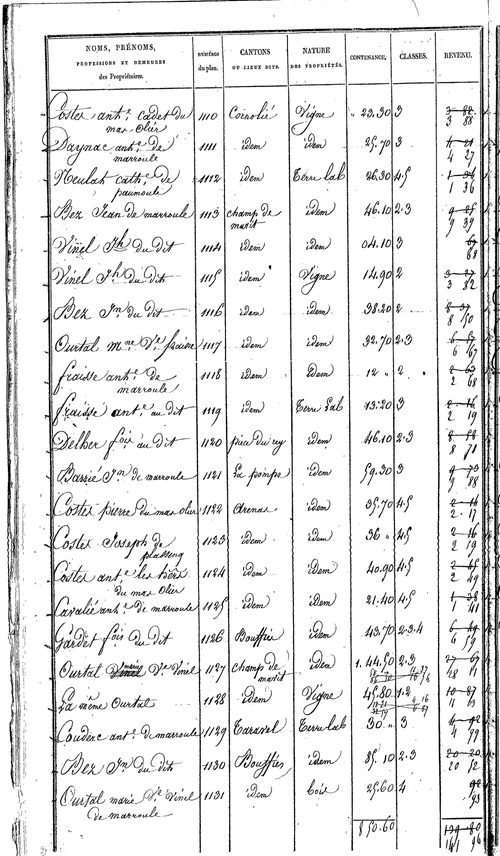 NOMS, PRÉNOMS, PROFESSIONS ET DEMEURES des Propriétaires. NUMÉROS du plan. CANTONS OU LIEUX DITS. NATURE DES PROPRIÉTÉS. CONTENANCE. CLASSES. REVENU.
Costes ant.e cadet du mas olier 1110 Cornolié Vigne " 23.30 3 3 82 3 88
Daynac ant.e de marroule 1111 idem idem 25.70 3 4 21 4 27
Neulat cath.e de paumoule 1112 idem Terre lab 26.30 4.5 1 36
Bez Jean de marroule 1113 champ de marit idem 46.10 2.3 9 25 9 39
Vinel Jh du dit 1114 idem idem 04.10 3 67 68
Vinel Jh du dit 1115 idem Vigne 14.90 2 3 77 3 82
Bez Jn du dit 1116 idem idem 38.20 2 8 37 8 50
Ourtal m.ne V.e fraisse 1117 idem idem 32.70 2.3 6 57 6 67
fraisse ant.e de marroule 1118 idem idem 12 " 2 2 63 2 68
fraisse ant.e du dit 1119 idem Terre Lab 13.20 3 2 16 2 19
Delher fois du dit 1120 pieu du rey idem 46.10 2.3 8 58 8 71
Barrié Jn de marroule 1121 La pompe idem 59.30 3 9 73 9 88
Costes pierre du mas olier 1122 Arenas idem 35.70 4.5 2 14 2.17
Costes Joseph de plasseng 1123 idem idem 36 " 4.5 2 16 2 19
Costes ant.e les hers du mas olier 1124 idem idem 40.90 4.5 2 45 2 49
Cavalié ant.e de marroule 1125 idem idem 21.40 4.5 1 38 1 41
Gardet fois du dit 1126 Bouffiés idem 43.70 2.3.4 6 59
Ourtal marie V.e Vinel 1127 champ de marit idem 1.44.50 2.3 27 69 28 11
La même Ourtal 1128 idem Vigne 45.80 1.2 10 87 11 13
Couderc ant.e de marroule 1129 Taravel Terre lab 30 " 3 4 92 4 99
Bez Jn du dit 1130 Bouffiés idem 85.10 2.3 20 20 20 52
Ourtal marie V.e Vinel de marroule 1131 idem bois 25.60 4 92 93
850.60 139 80 141 96